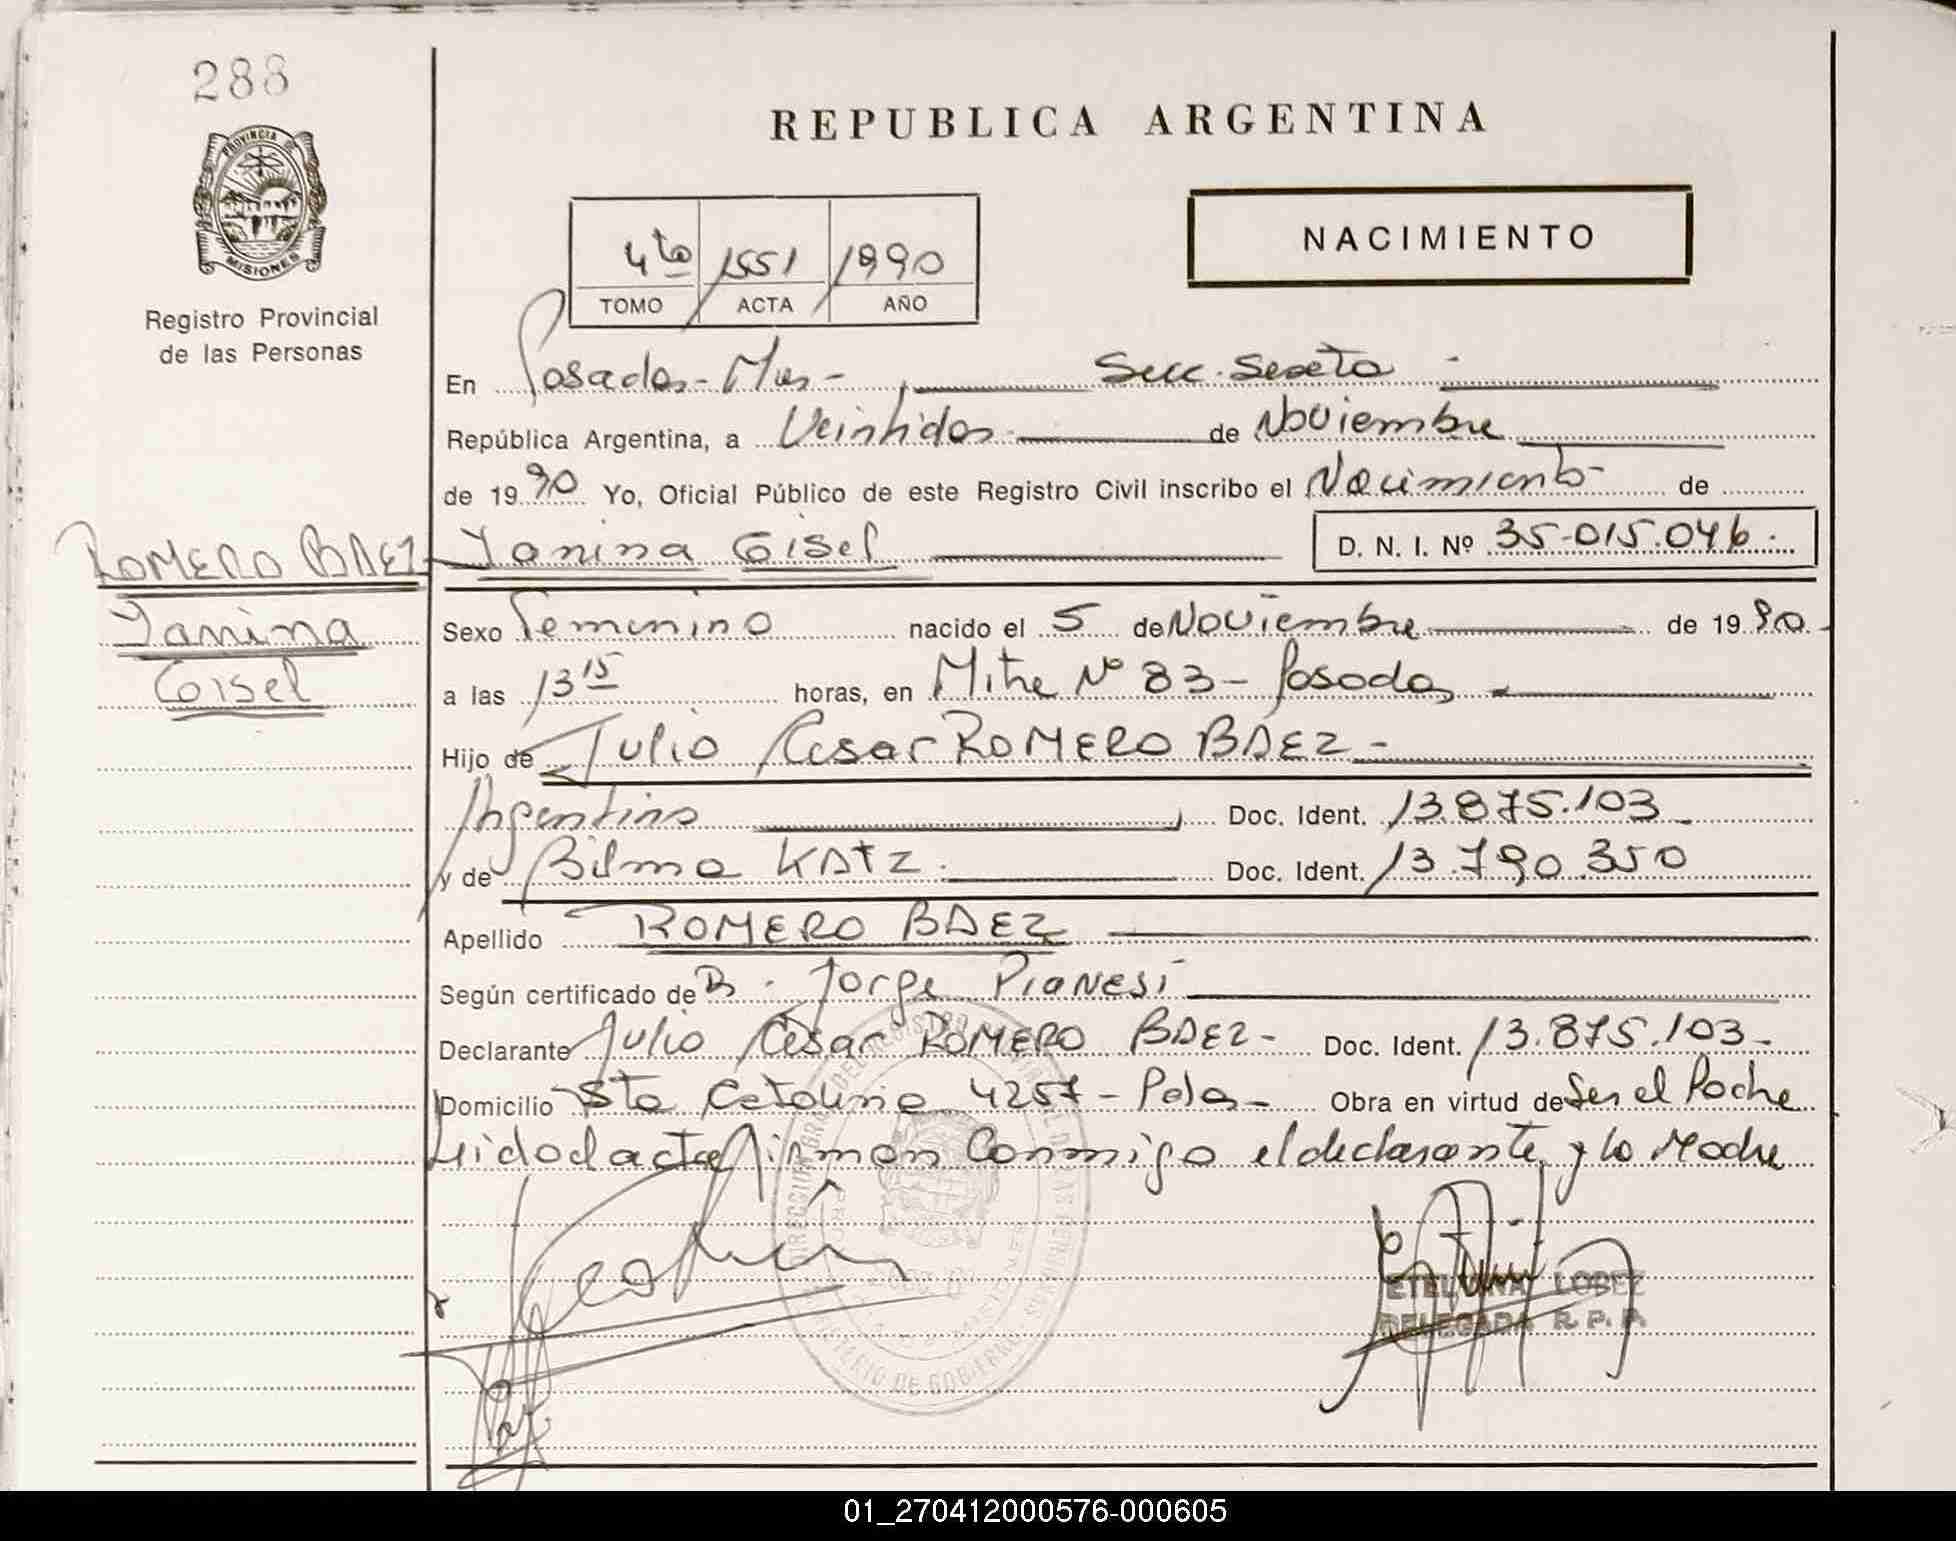 288
REPUBLICA ARGENTINA
PROVINCIA DE
MISIONES
Registro Provincial
de las Personas
4to 1551 1990
TOMO ACTA AÑO
NACIMIENTO
En Posadas - Mnes - Secc. Sexta
República Argentina, a Veintidos de Noviembre
de 1990 Yo, Oficial Público de este Registro Civil inscribo el Nacimiento de
ROMERO BAEZ Yanina Gisel D. N. I. Nº 35.015.046.
Yanina
Gisel
Sexo Femenino nacido el 5 de Noviembre de 1990.
a las 13 15 horas, en Mitre Nº 83 - Posadas
Hijo de Julio Cesar ROMERO BAEZ -
Argentino Doc. Ident. 13.875.103
y de Bilma KATZ. Doc. Ident. 13.790.350
Apellido ROMERO BAEZ
Según certificado de Jorge Pianesi
Declarante Julio Cesar ROMERO BAEZ - Doc. Ident. 13.875.103 -
Domicilio Sta Catalina 4257 - Pdas - Obra en virtud de Ser el Padre
Leido el acta firman Conmigo el declarante y la Madre
ETELVINA LOPEZ
DELEGADA R. P. P.
01_270412000576-000605